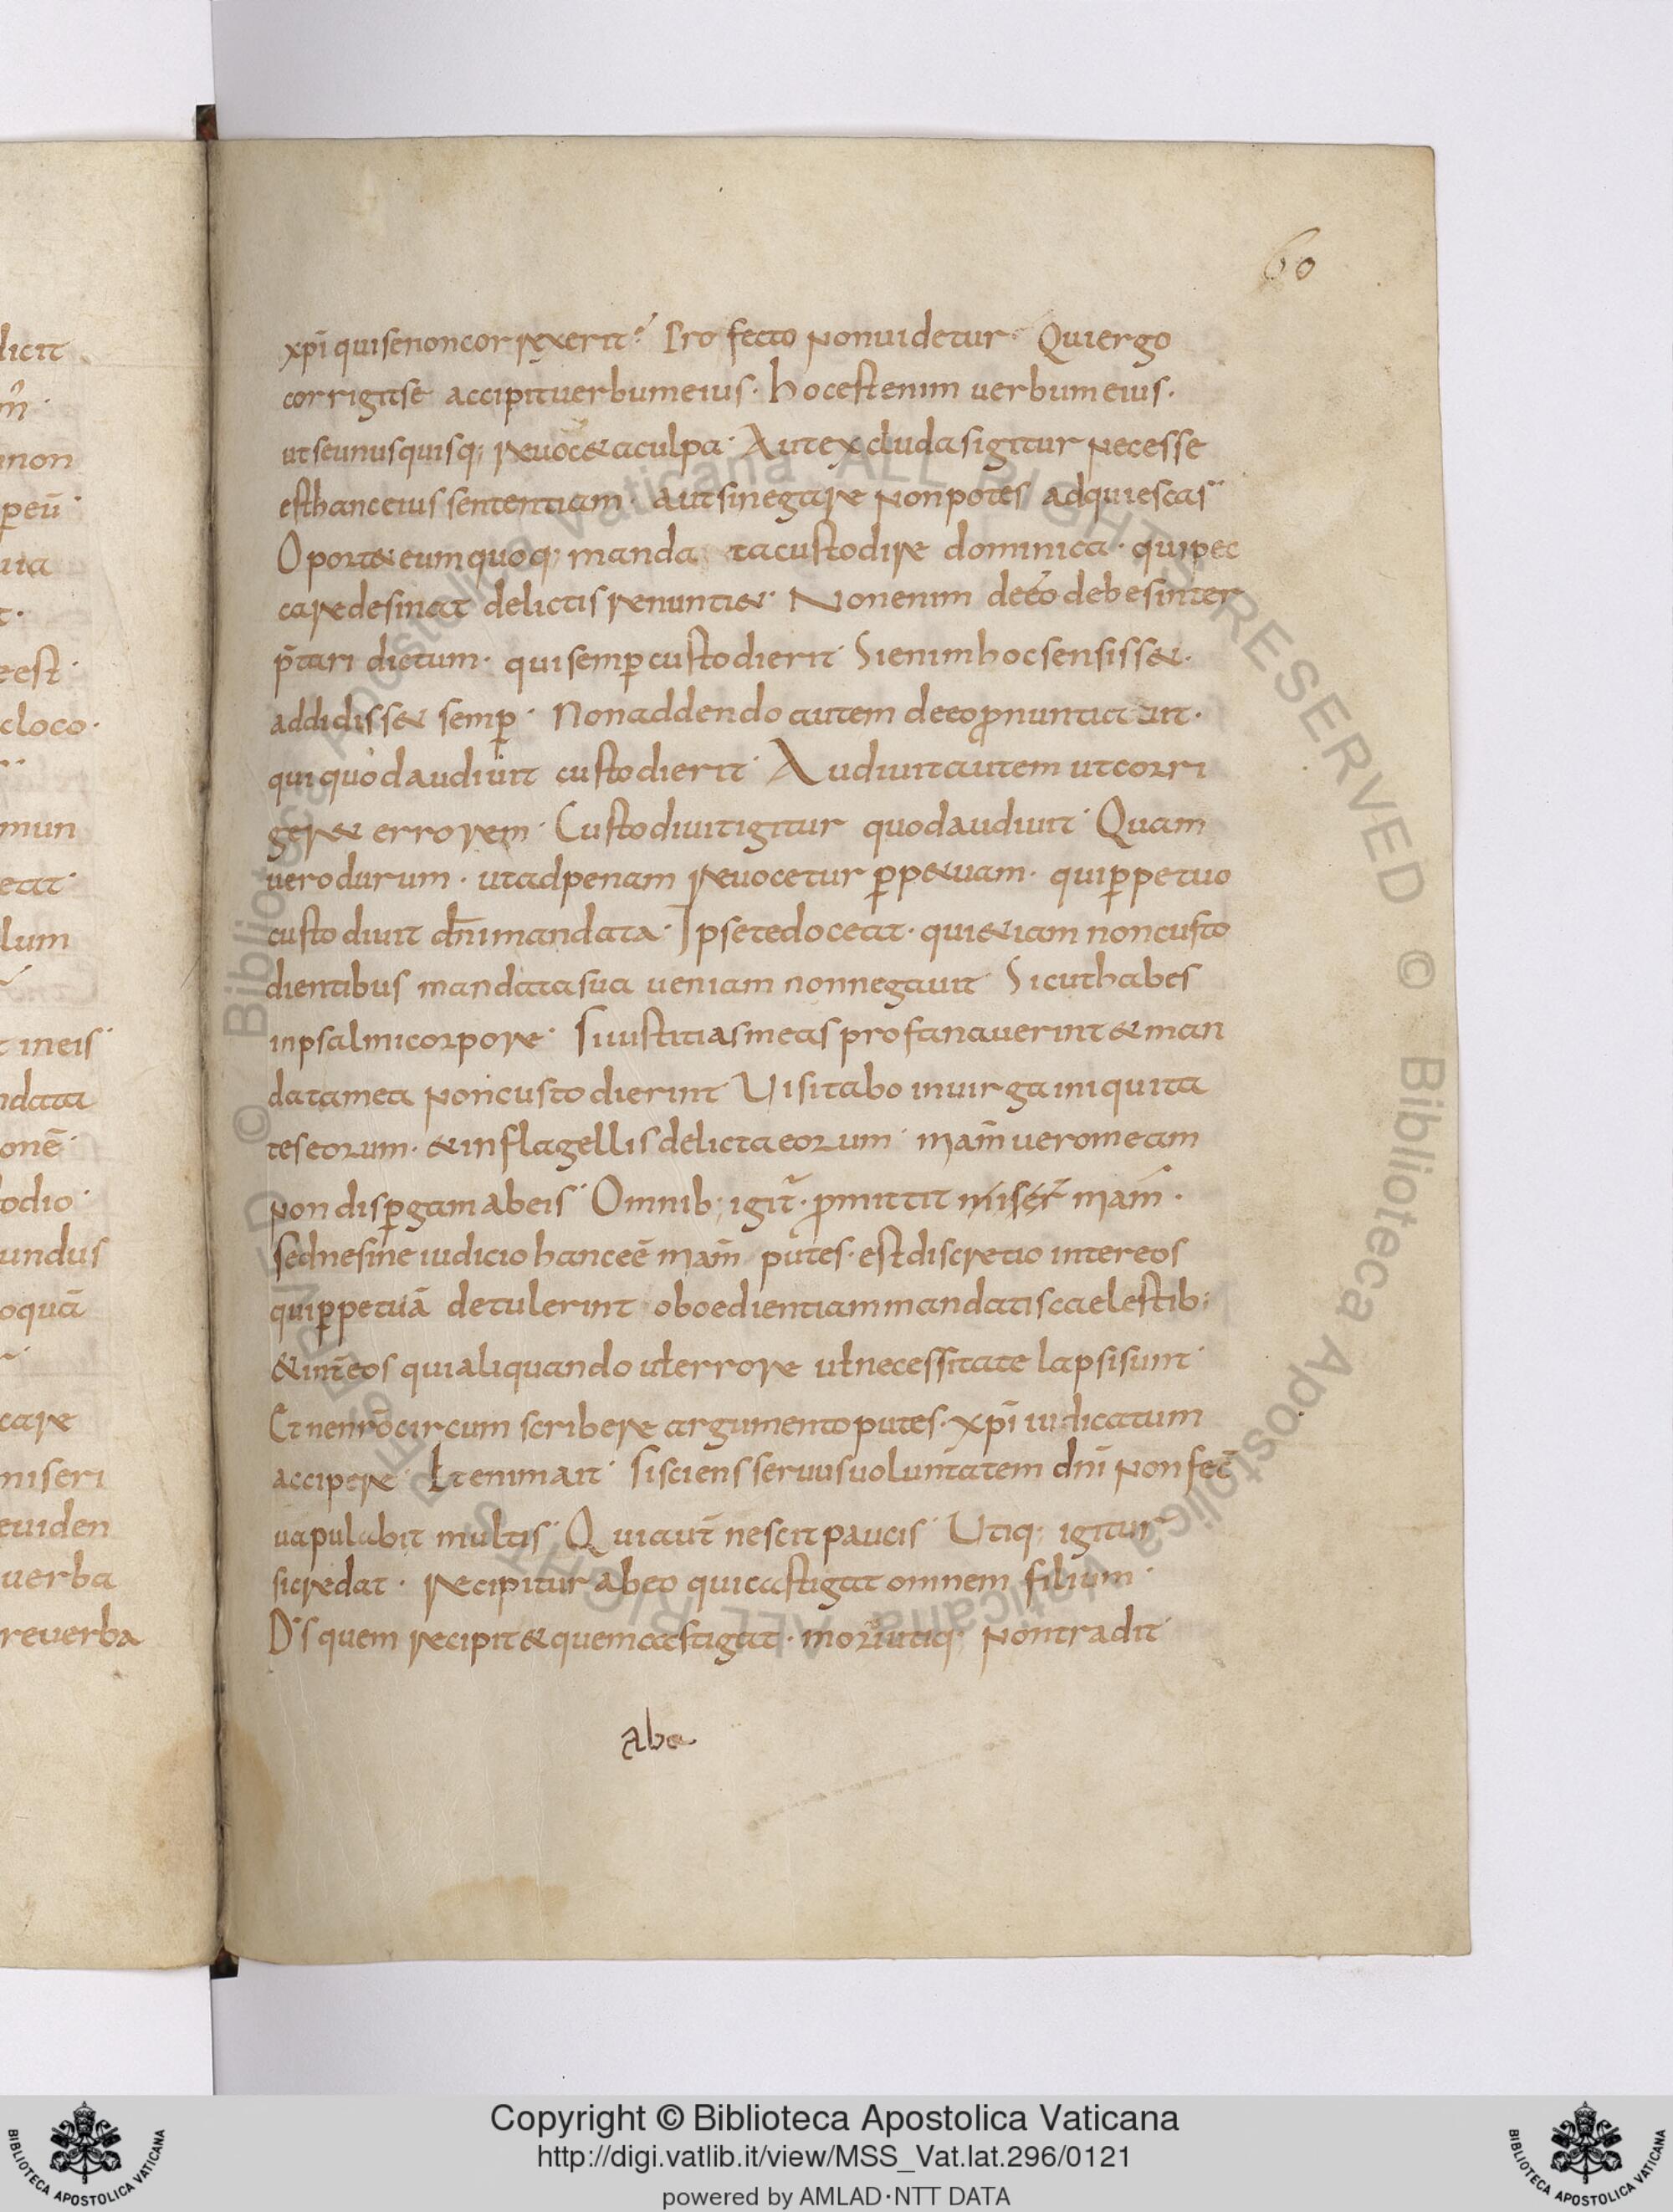 licit
non
ꝑeū
uia
t·
eest
cloco·
mun
etat
lum
t ineis
ndata
onē
todio
undus
oquā
care
miseri
euiden
uerba
reuerba
60
xp̄i quisenoncorrexerit? Profecto nonuidetur· Quiergo
corrigitse accipituerbumeius· hocestenim uerbumeius·
utseunusquisq; reuoc&aculpa· Autexcludasigitur necesse
esthanceiussententiam· autsinegare nonpotes adquiescas
Oport&eumquoq; manda tacustodire dominica· quipec
caredesinat delictisrenunti&· Nonenim deeo debesinter
p̄tari dictum· quisemꝑcustodierit Sienimhocsensiss&·
addidiss& semꝑ· Nonaddendo autem deeoꝓnuntiauit·
quiquodaudiuit custodierit Audiuitautem utcorri
ger& errorem· Custodiuitigitur quodaudiuit Quam
uerodurum· utadpenam reuocetur ꝑp&uam· quiꝑpetuo
custodiuit dn̄imandata· Ipsetedoceat· qui&iam noncusto
dientibus mandatasua ueniam nonnegauit Sicuthabes
inpsalmicorpore· Siiustitiasmeas profanauerint&man
datamea noncustodierint Uisitabo inuirgainiquita
teseorum· &inflagellisdelictaeorum· mam̄ ueromeam
non disꝑgam abeis Omnib; igit̄· ꝓmittit miser̄ mam̄·
sednesine iudicio hanceē mam̄ putes· estdiscretio intereos
quiꝑpetuā detulerint oboedientiammandatiscaelestib;
&int̄eos quialiquando uƚerrore uƚnecessitate lapsisunt
Etnenr̄ocircumscribere argumentoputes· xp̄i iudicatum
accipere Etenimait sisciensseruusuoluntatem dn̄i nonfec̄
uapulabit multis Quiaut̄ nescitpaucis Utiq; igitur
sicredat· recipitur abeo quicastigat omnem filium·
D's quem recipit&quemcastigat· moriutiq; nontradit
abc
Copyright © Biblioteca Apostolica Vaticana
http://digi.vatlib.it/view/MSS_Vat.lat.296/0121
powered by AMLAD·NTT DATA
BIBLIOTECA APOSTOLICA VATICANA
BIBLIOTECA APOSTOLICA VATICANA
© Biblioteca Apostolica Vaticana ALL RIGHTS RESERVED © Biblioteca Apostolica Vaticana ALL RIGHTS RESERVED